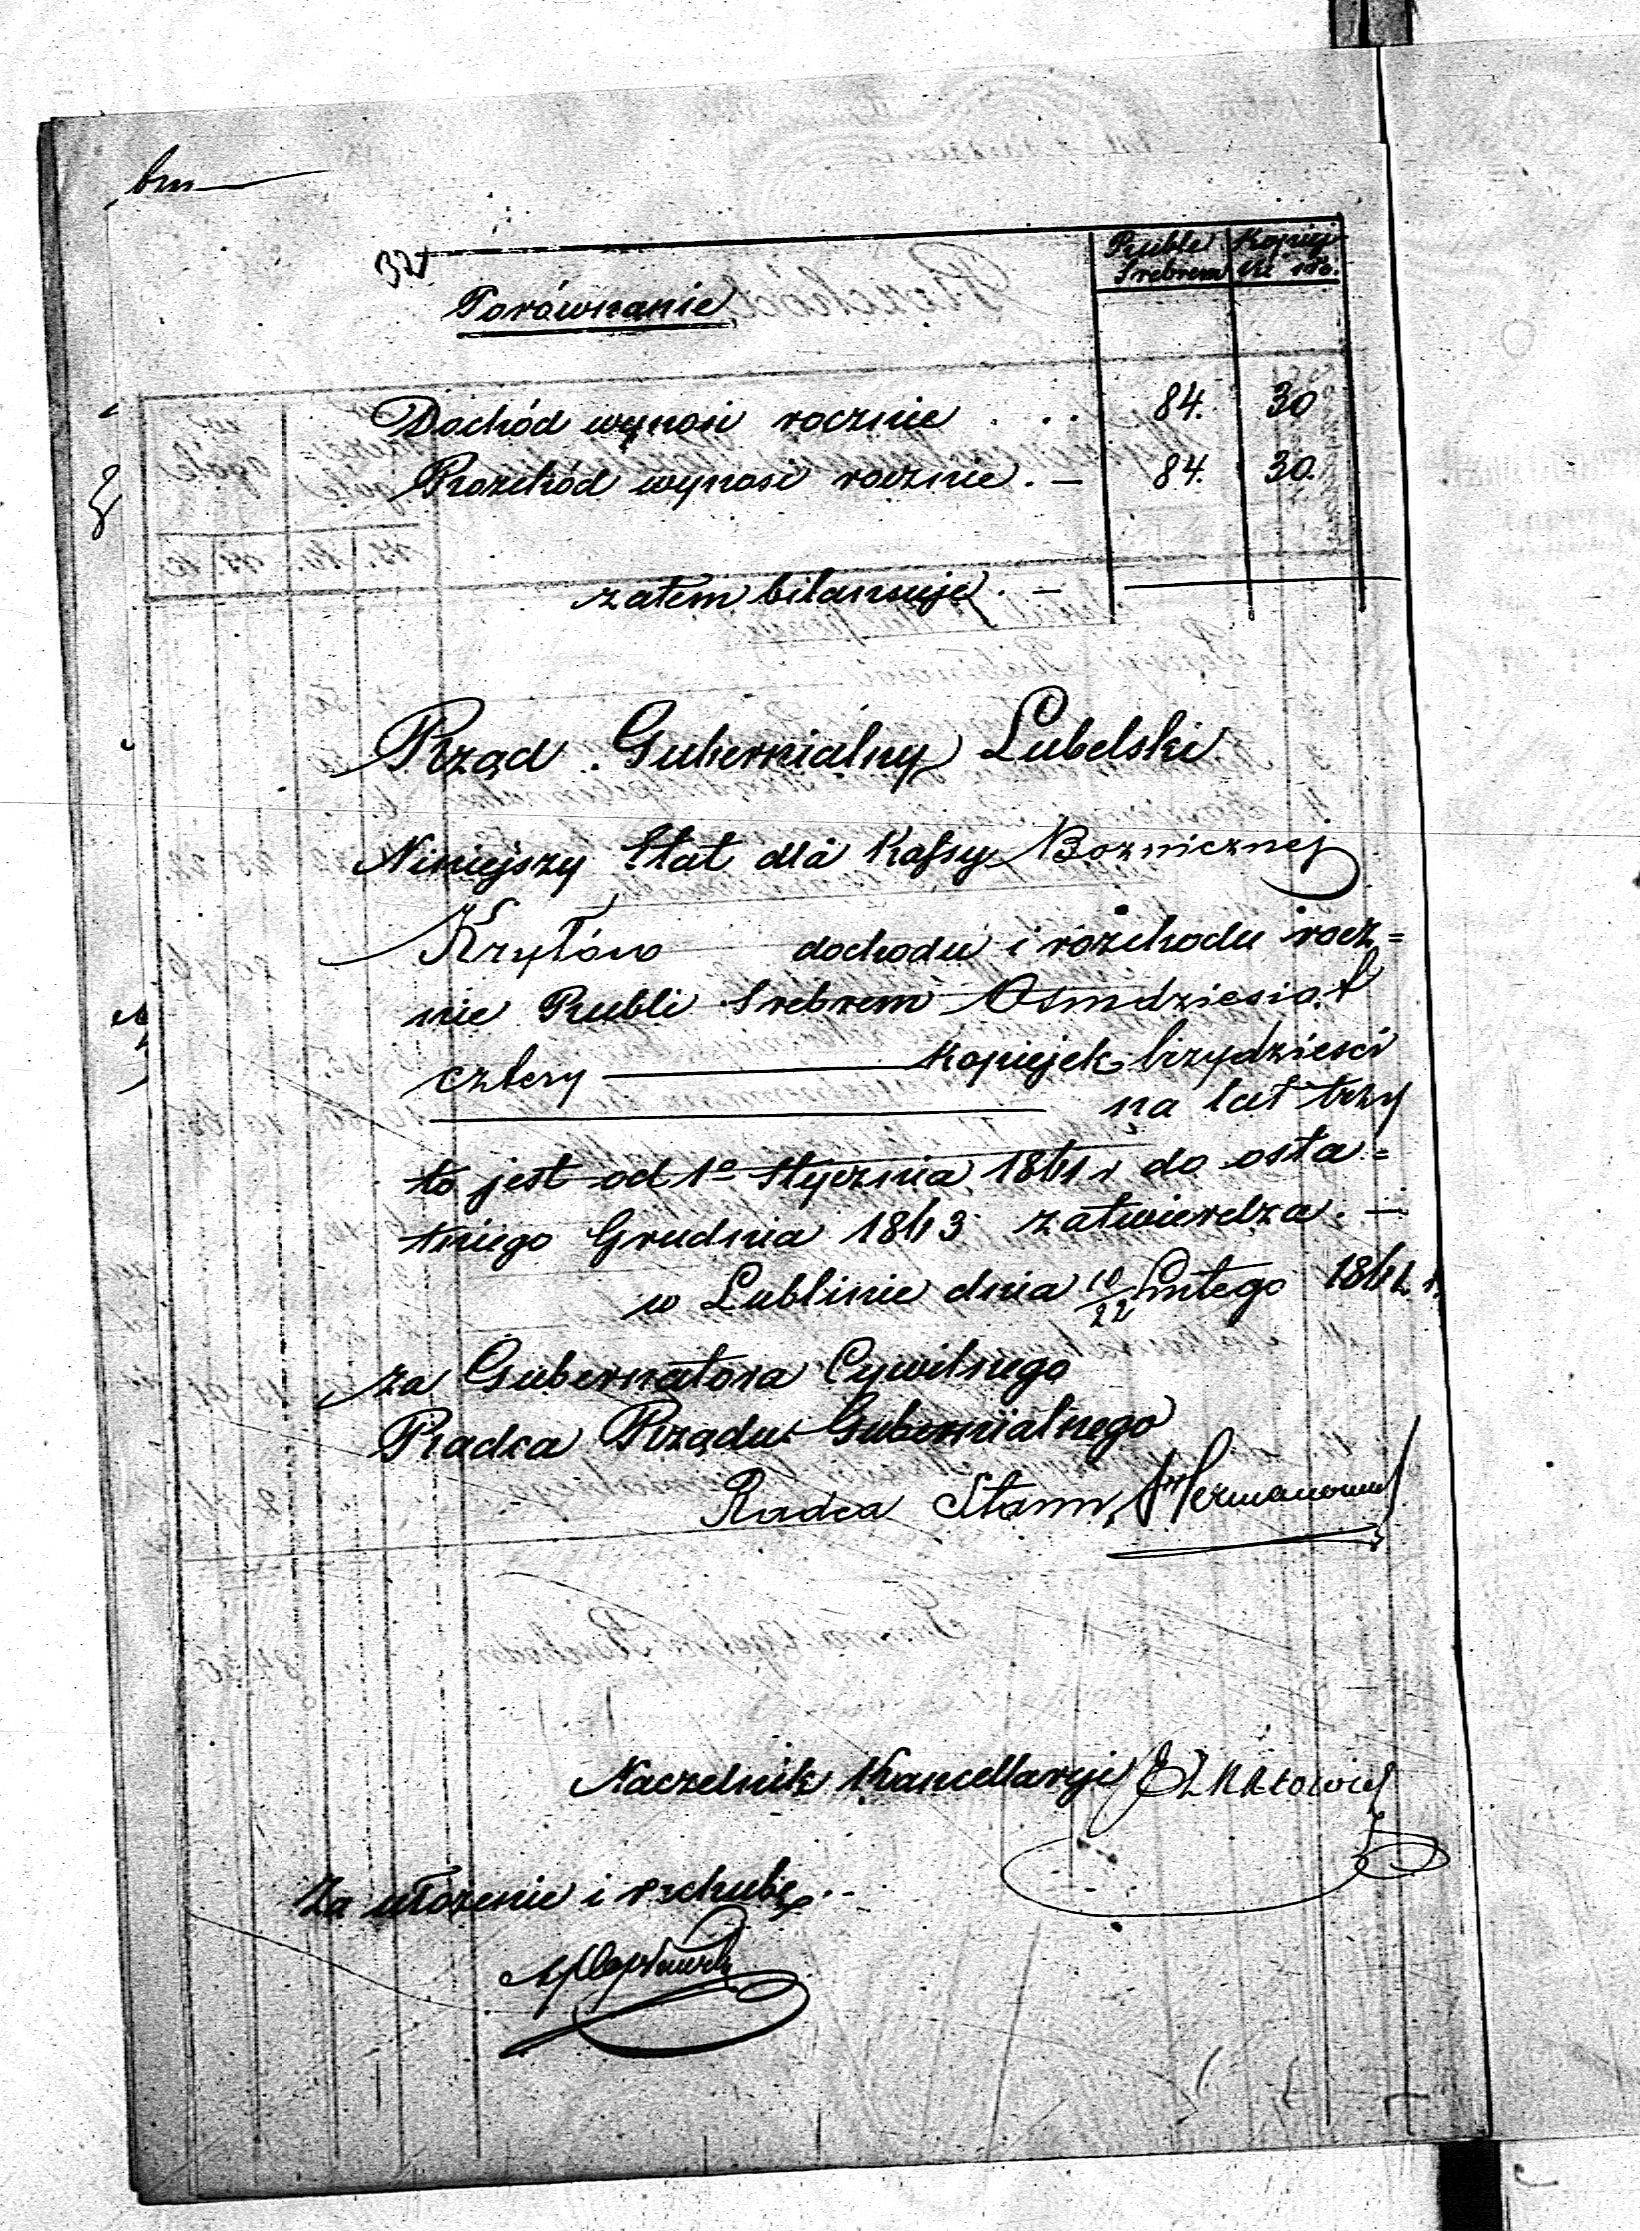 Ruble Kopiej
Srebrem
Porównanie
Dochód wynosi rocznie . . . 84. 30
Rozchód wynosi rocznie . — 84. 30.
zatem bilansuje . —
Rząd Gubernialny Lubelski
Niniejszy Etat dla Kassy Boznicznej
Kryłów dochodu i rozchodu rocz=
nie Rubli Srebrem Osmdziesiąt
cztery — Kopiejek trzydzieści
— na lat trzy
to jest od 1º Stycznia 1861 r do osta=
tniego Grudnia 1863 zatwierdza. —
w Lublinie dnia 10/22 Lutego 1861 r.
za Gubernatora Cywilnego
Radca Rządu Gubernialnego
Radca Stanu, Hermanowicz
Naczelnik Kancellaryi
Za ułożenie i rachubę . -